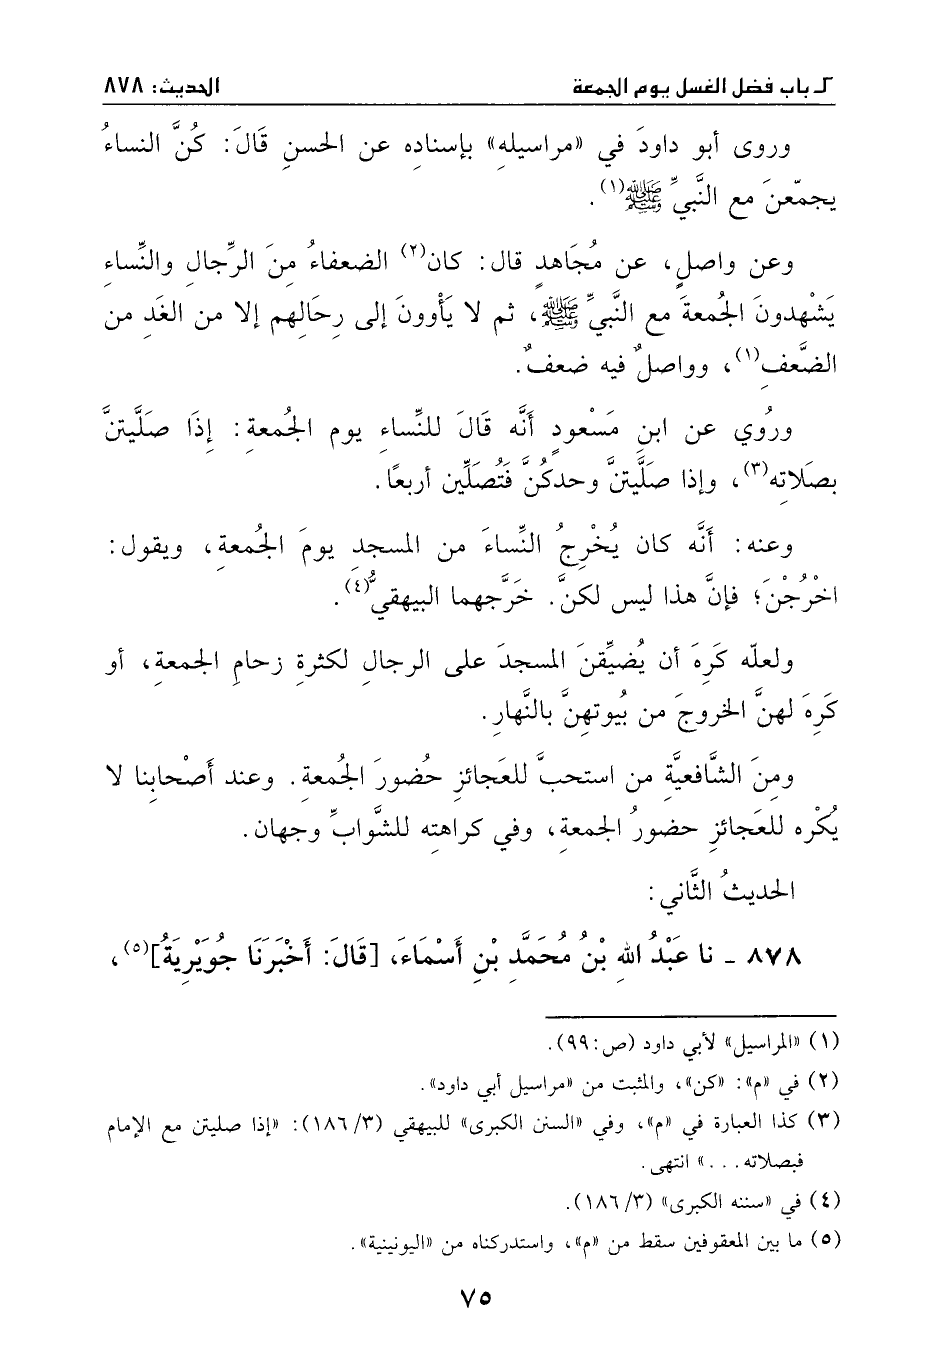 كـ باب فضل الغسل يوم الجمعة الحديث: ٨٧٨
وروى أبو داودَ في «مراسيلهِ» بإسنادِه عن الحسنِ قَالَ: كُنَّ النساءُ
يجمّعنَ مع النَّبيِّ ﷺ(١).
وعن واصلٍ، عن مُجَاهدٍ قال: كان(٢) الضعفاءُ مِنَ الرِّجالِ والنِّساءِ
يَشْهدونَ الجُمعةَ مع النَّبيِّ ﷺ، ثم لا يَأْوونَ إلى رِحَالِهم إلا من الغَدِ من
الضَّعفِ(١)، وواصلٌ فيه ضعفٌ.
ورُوي عن ابنِ مَسْعودٍ أنَّه قَالَ للنِّساءِ يوم الجُمعةِ: إذَا صَلَّيتنَّ
بصَلاتِه(٣)، وإذا صَلَّيتنَّ وحدكُنَّ فَتُصَلِّين أربعًا.
وعنه: أنَّه كان يُخْرِجُ النِّساءَ من المسجدِ يومَ الجُمعةِ، ويقول:
اخْرُجْنَ؛ فإنَّ هذا ليس لكنَّ. خَرَّجهما البيهقيُّ(٤).
ولعلّه كَرِهَ أن يُضيِّقنَ المسجدَ على الرجالِ لكثرةِ زحامِ الجمعةِ، أو
كَرِهَ لهنَّ الخروجَ من بُيوتهنَّ بالنَّهارِ.
ومِنَ الشَّافعيَّةِ من استحبَّ للعَجائزِ حُضورَ الجُمعةِ. وعند أصْحابِنا لا
يُكْره للعَجائزِ حضورُ الجمعةِ، وفي كراهتِه للشَّوابِّ وجهان.
الحديثُ الثَّاني:
٨٧٨ ـ نا عَبْدُ اللهِ بْنُ مُحَمَّدِ بْنِ أَسْمَاءَ، [قَالَ: أَخْبَرَنَا جُوَيْرِيَةُ](٥)،
(١) «المراسيل» لأبي داود (ص:٩٩).
(٢) في «م»: «كن»، والمثبت من «مراسيل أبي داود».
(٣) كذا العبارة في «م»، وفي «السنن الكبرى» للبيهقي (٣/ ١٨٦): «إذا صليتن مع الإمام
فبصلاته. . .» انتهى.
(٤) في «سننه الكبرى» (٣/ ١٨٦).
(٥) ما بين المعقوفين سقط من «م»، واستدركناه من «اليونينية».
٧٥